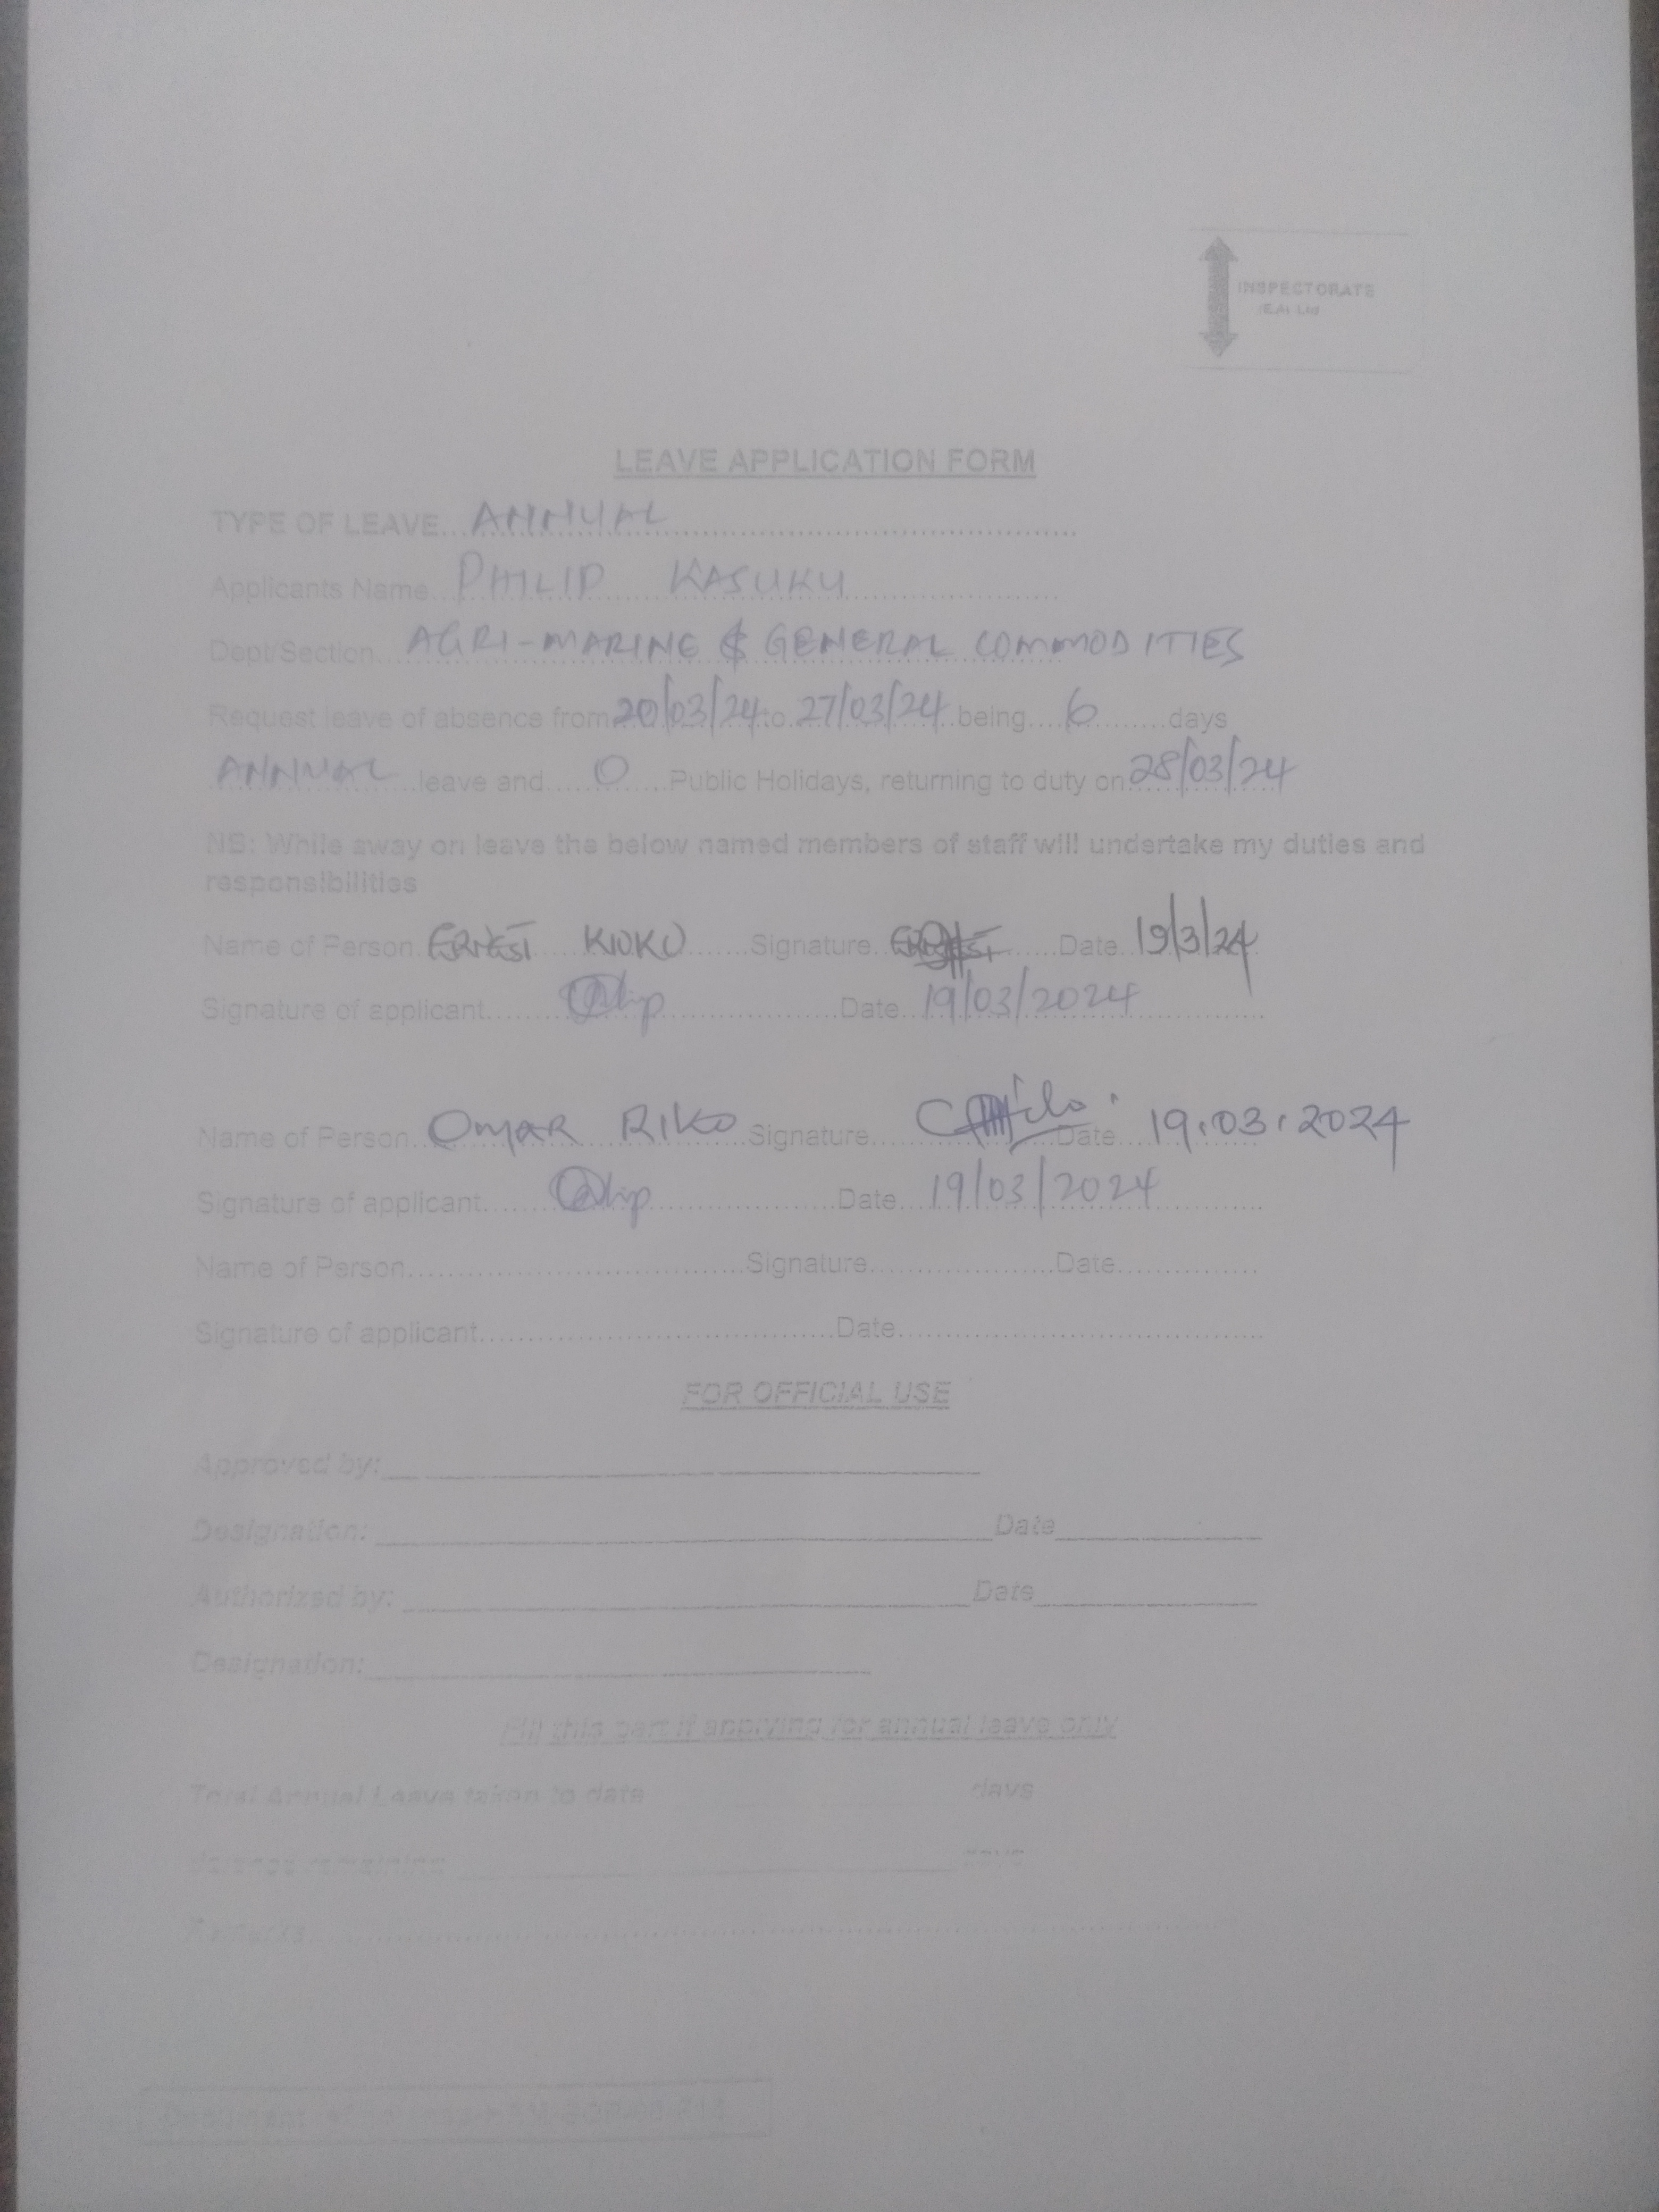 INSPECTORATE
(E.A) Ltd
LEAVE APPLICATION FORM
TYPE OF LEAVE...ANNUAL
Applicants Name...PHILIP KASUKU
Dept/Section...AGRI-MARINE & GENERAL COMMODITIES
Request leave of absence from 20/03/24 to 27/03/24 being...6...days
ANNUAL...leave and...0...Public Holidays, returning to duty on 28/03/24
NB: While away on leave the below named members of staff will undertake my duties and
responsibilities
Name of Person...ERNEST KIOKO...Signature...Date...19/3/24
Signature of applicant...Date...19/03/2024
Name of Person...OMAR RIKO...Signature...Date...19.03.2024
Signature of applicant...Date...19/03/2024
Name of Person...Signature...Date...
Signature of applicant...Date...
FOR OFFICIAL USE
Approved by:
Designation: Date
Authorized by: Date
Designation:
Fill this part if applying for annual leave only
Total Annual Leave taken to date days
Balance remaining days
Remarks